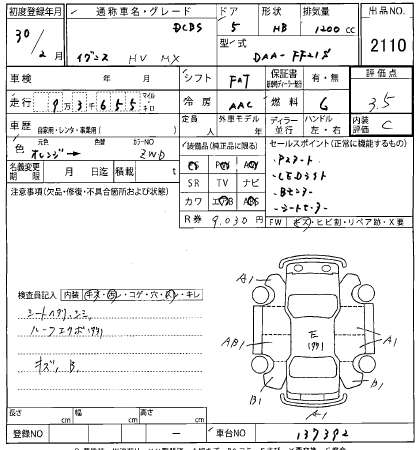 初度登録年月 通称車名・グレード ドア 形状 排気量 出品NO
30年 2月 イグニス HV MX DCBS 5 HB 1200cc 2110
型式 DAA-FF21S
車検 年 月 シフト FAT 保証書 有・無 評価点 3.5
走行 9万3千655 マイル キロ 冷房 AAC 燃料 G
車歴 自家用・レンタ・事業用( ) 定員 人 外車モデル年 ディーラー 並行 ハンドル 左・右 内装評価 C
色 元色 オレンジ→ 色替 カラーNO ZWD
装備品(純正品に限る) PS PW AW
SR TV ナビ
カワ エアB ABS
R券 9,030円
セールスポイント(正常に機能するもの)
・Pスタート
・LEDライト
・Bモニター
・シートヒーター
名義変更期限 月 日迄 積載 t
FW キズ・ヒビ割・リペア跡・X要
注意事項(欠品・修復・不具合箇所および状態)
検査員記入 内装 キズ・汚レ・コゲ・穴・スレ・キレ
シートヘタリ、シミ
キズ、B.
A1
AB1 A1
B1 B1
A1
長さ cm 幅 cm 高さ cm
登録NO ー 車台NO 137392